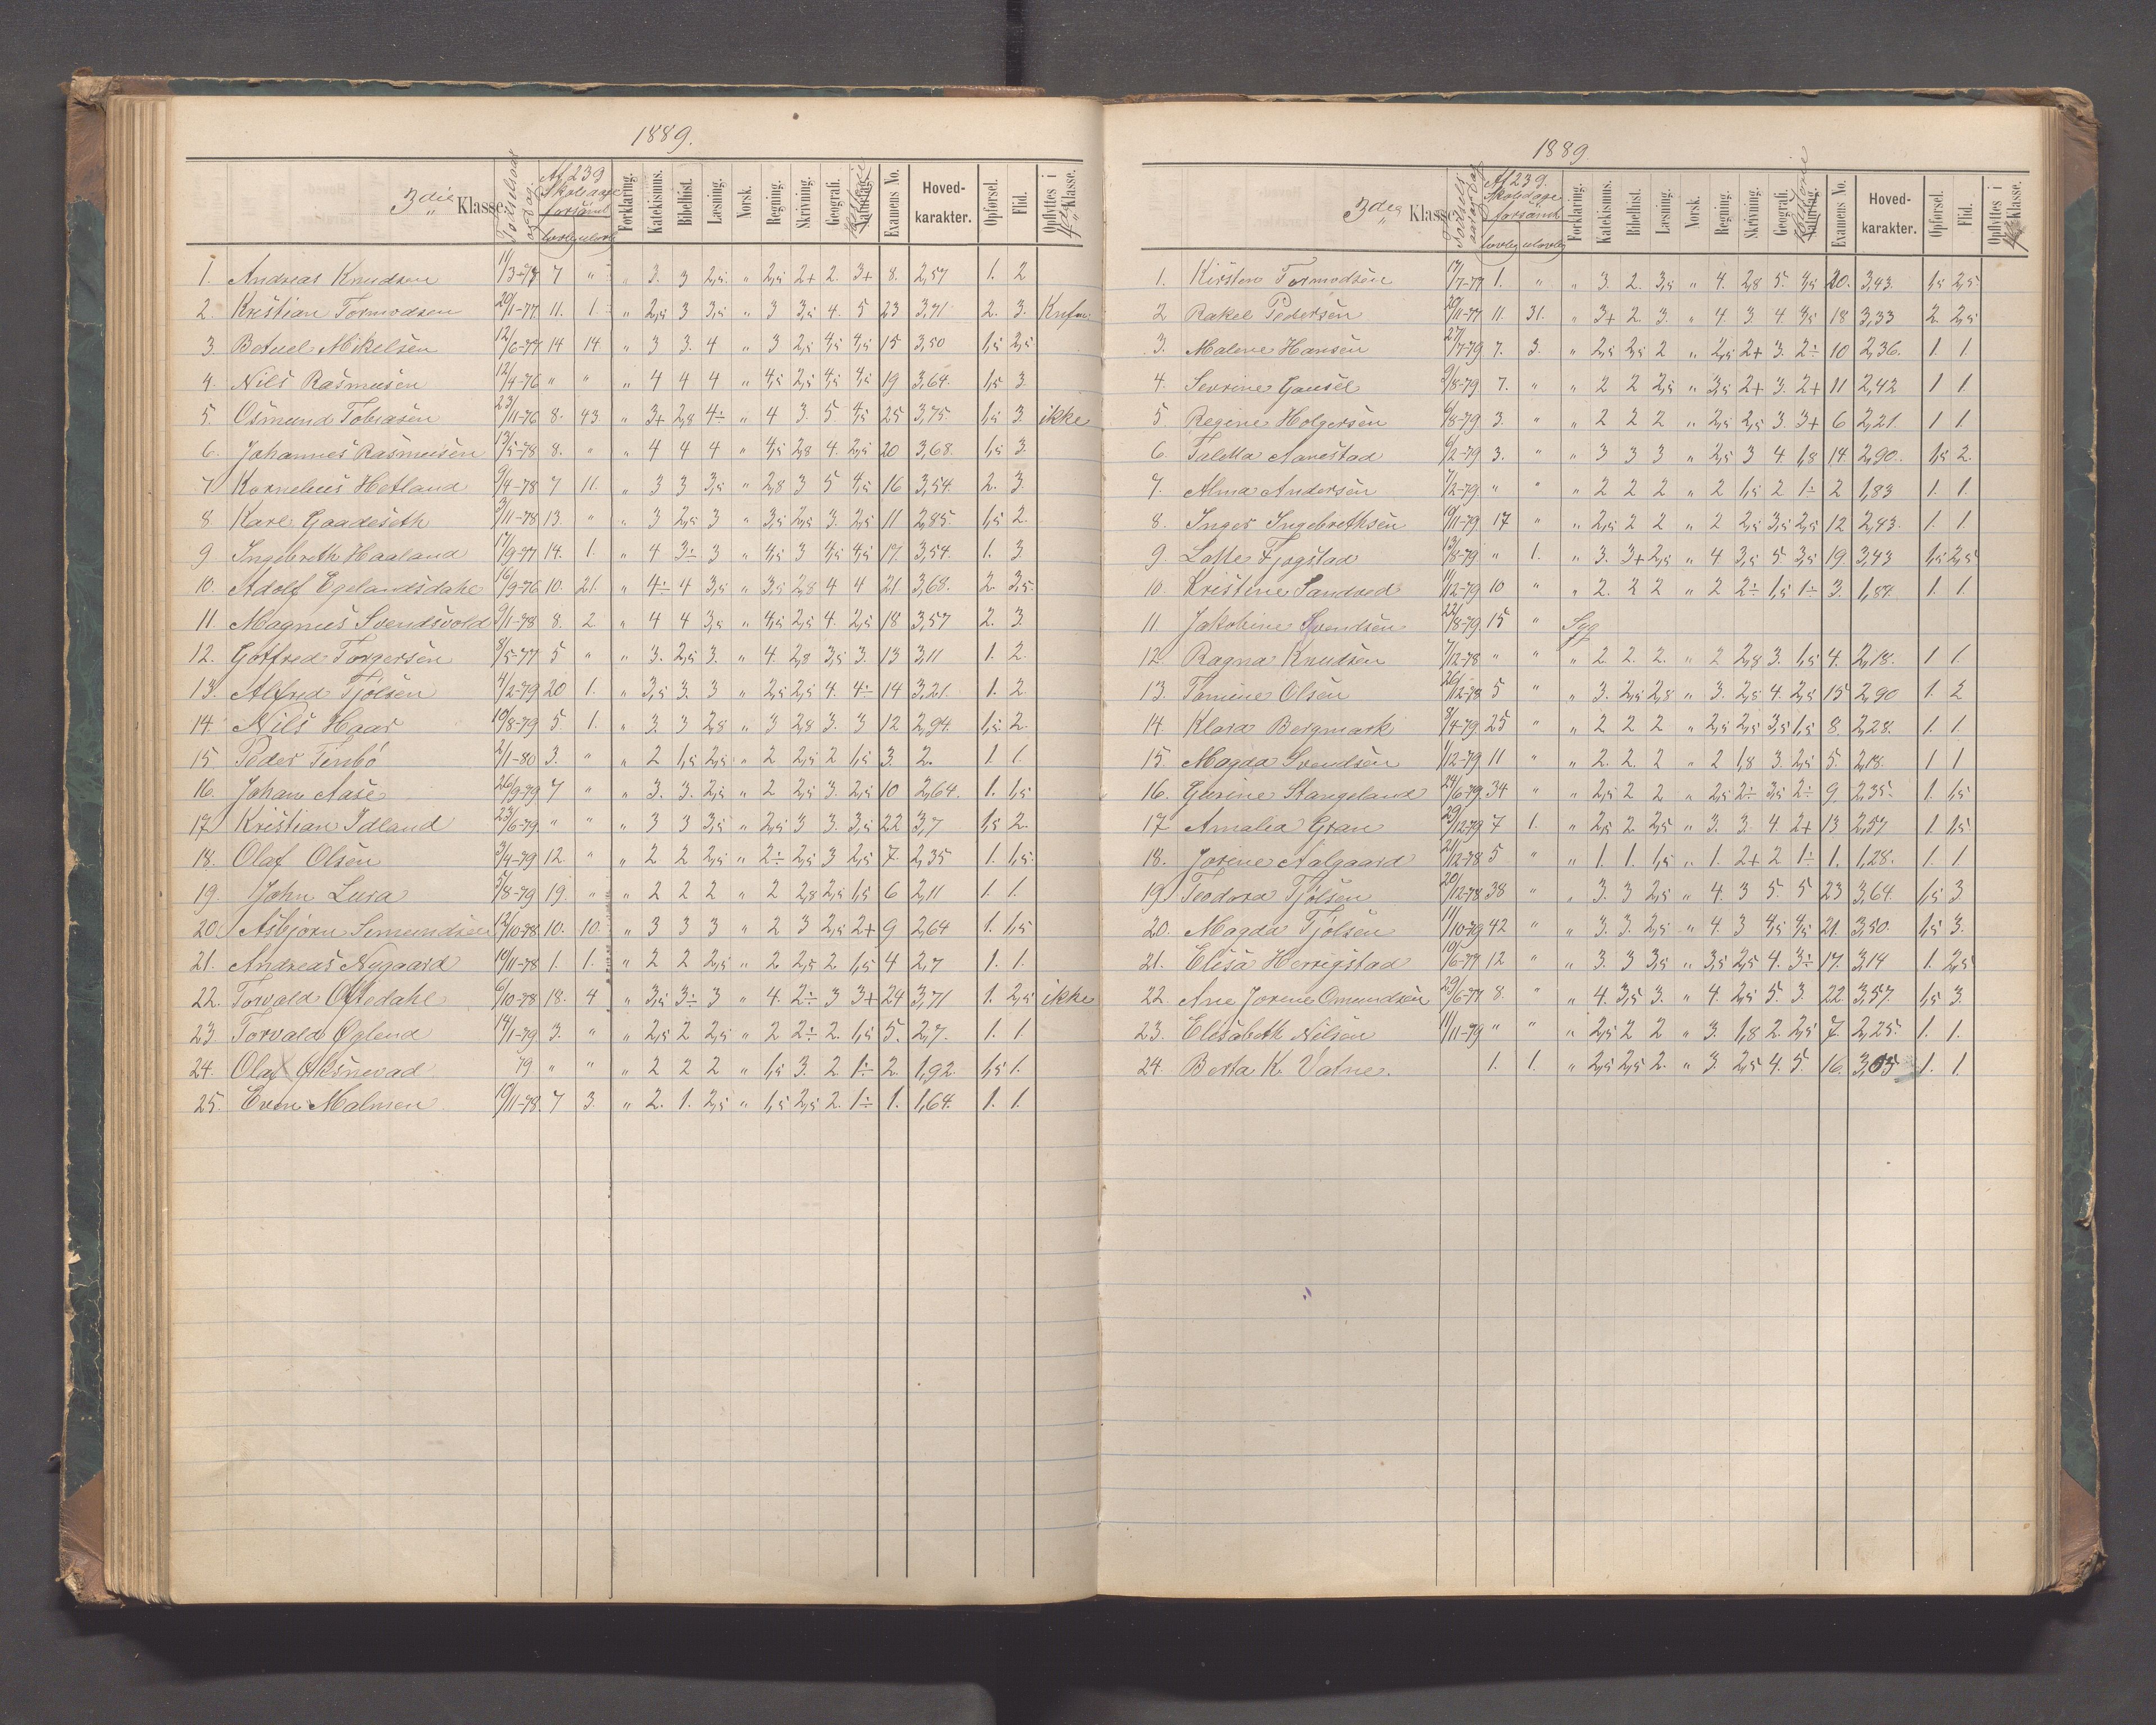 1889.
3die Klasse. Fødselsaar og dag. Af 239 Skoledage forsømt lovlig ulovlig Forklaring. Katekismus. Bibelhist. Læsning. Norsk. Regning. Skrivning. Geografi. Naturfag. Historie Examens No. Hoved-karakter. Opførsel. Flid. Opflyttes i 4de Klasse.
1. Andreas Knudsen 11/3-78 7 " " 3. 3 2,5 " 2,5 2+ 2. 3+ 8. 2,57 1. 2
2. Kristian Tormodsen 29/1-77 11. 1. " 2,5 3 3,5 " 3 3,5 4. 5 23 3,71 2. 3.
3 Betuel Mikelsen 12/6-77 14 14 " 3 3. 4 " 3 2,5 4,5 4,5 15 3,50 1,5 2,5
4. Nils Rasmusen 12/4-76 " " " 4 4 4 " 4,5 2,5 4,5 4,5 19 3,64. 1,5 3.
5. Osmund Tobiasen 23/11-76 8. 43. " 3+ 2,8 4÷ " 4 3. 5. 4,5 25 3,75 1,5 3. ikke
6. Johannes Rasmusen 13/5-78 8. " " 4 4 4 " 4,5 2,8 4. 2,5 20 3,68. 1,5 3.
7 Kornelius Hetland 9/4-78 7 11. " 3 3 3,5 " 2,8 3 5 4,5 16 3,54. 2. 3.
8. Karl Gaadeseth 3/11-78 13. " " 3 2,5 3 " 3,5 2,5 3. 2,5 11 2,85. 1,5 2.
9. Ingebreth Haaland 17/9-77 14. 1. " 4 3÷ 3 " 4,5 3 4,5 4,5 17. 3,54. 1. 3
10. Adolf Egelandsdahl 16/9-76 10. 21. " 4÷ 4 3,5 " 3,5 2,8 4 4 21 3,68. 2. 3,5.
11. Magnus Svendsvold 9/1-78 8. 2 " 4 4 3,5 " 4,5 2,5 4. 2,5 18 3,57 2. 3
12. Gotfred Torgersen 8/5-77 5 " " 3. 2,5 3. " 4. 2,8 3,5 3. 13 3,11 1. 2.
13. Alfred Tjølsen 4/2-79 20 1. " 3,5 3. 3 " 2,5 2,5 4. 4÷ 14 3,21. 1. 2
14. Nils Haar 19/8-79 5. 1. " 3. 3 2,8 " 3 2,8 3. 3 12 2,94. 1,5 2.
15. Peder Tinbø 2/1-80 3. " " 2 1,5 2,5 " 2 2,5 2 1,5 3. 2. 1. 1.
16. Johan Aase 26/9-79 7 " " 3. 3. 2,5 " 2 2,5 3. 2,5 10 2,64. 1. 1,5
17 Kristian Idland 23/6-79. " " " 3 3 3,5 " 2,5 3 3. 3,5 22 3,7 1,5 2.
18. Olaf Olsen 3/4-79 12. " " 2 2 2,5 " 2÷ 2,5 3 2,5 7. 2,35 1. 1,5
19. John Lura 5/8-79 19. " " 2 2 2 " 2 2,8 2,5 1,5 6 2,11 1. 1.
20. Asbjørn Simundsen 12/10-78 10. 10. " 3 3 3 " 2 3 2,5 2+ 9 2,64 1. 1,5
21. Andreas Nygaard 14/11-78 1. 1. " 2 2 2,5 " 2 2,5 2 1,5 4 2,7 1. 1.
22. Torvald Oftedahl 6/10-78 18. 4 " 3,5 3÷ 3 " 4. 2÷ 3 3+ 24 3,71 1. 2,5 ikke
23. Torvald Øglend 14/1-79 3. " " 2,5 2 2,5 " 2 2÷ 2. 1,5 5. 2,7. 1. 1
24. Olaf 79 " " " 2 2 2 " 1,5 3. 2. 1÷ 2. 1,92. 1,5 1.
25. Even Malmen 19/11-78. 7 3. " 2. 1. 2,5 " 1,5 2,5 2. 1÷ 1. 1,64. 1. 1.
1889
3die Klasse. Fødselsaar og dag. Af 239. Skoledage forsømt lovlig ulovlig Forklaring. Katekismus. Bibelhist. Læsning. Norsk. Regning. Skrivning. Geografi. Naturfag. Historie Examens No. Hoved-karakter. Opførsel. Flid. Opflyttes i Klasse.
1. Kirsten Tormodsen 17/7-77 1. " " 3. 2. 3,5 " 4. 2,8 5. 4,5 20. 3,43. 1,5 2,5
2 Rakel Pedersen 20/11-77 11. 31. " 3+ 2. 3. " 4. 3. 4. 4,5 18 3,33 2. 2,5
3. Malene Hansen 27/7-79 7. 3. " 2,5 2,5 2 " 2,5 2+ 3. 2÷ 10 2,36. 1. 1.
4. Sevrine Gausel 9/8-79 7. " " 2 2 2,5 " 3,5 2+ 3. 2+ 11 2,42 1 1.
5 Regine Holgersen 6/8-79 3. " " 2 2 2 " 2,5 2,5 3. 3+ 6 2,21. 1 1.
6. Taletta Aarrestad 6/2-79 3. " " 3 3 3 " 2,5 3 4. 1,8 14. 2,90. 1,5 2.
7. Alma Andersen 7/2-79. " " " 2 2 2 " 2 1,5 2 1÷ 2 1,83 1. 1.
8. Inger Ingebrethsen 19/11-79 17 " " 2,5 2 2 " 2 2,5 3,5 2,5 12 2,43. 1. 1.
9. Lotte Fjogstad 13/8-79 " 1. " 3. 3+ 2,5 " 4 3,5 5 3,5 19. 3,43 1,5 2,5
10. Kristine Sandved 11/12-79 10 " " 2. 2 2 " 2 2÷ 1,5 1÷ 3. 1,87. 1. 1.
11 Jakobine Svendsen 22/8-79. 15 " Syg
12. Ragna Knudsen 7/12-78 " " " 2. 2. 2. " 2 2,8 3. 1,5 4. 2,18. 1 1.
13. Tomine Olsen 26/12-78 5 " " 3. 2,5 2,8 " 3. 2,5 4. 2,5 15 2,90 1. 2
14. Klara Bergmark 8/4-79. 25 " " 2 2 2 " 2,5 2,5 3,5 1,5 8. 2,28. 1. 1.
15. Magda Svendsen 1/12-79 11 " " 2. 2. 2 " 2 1,8 3. 2,5 5. 2,18. 1 1
16. Gurine Stangeland 24/6-79. 34 " " 2,5 2 2 " 2,5 2÷ 3,5 2÷ 9. 2,35. 1. 1,5
17 Amalia Gran 29/12-79 7 1. " 2,5 2. 2,5 " 3. 3. 4. 2+ 13 2,57 1. 1,5
18. Jorine Aalgaard 21/12-78 5 " " 1. 1. 1,5 " 1. 2+ 2 1÷ 1. 1,28. 1. 1.
19 Teodora Tjølsen 20/12-78 38 " " 3. 3 2,5 " 4. 3 5. 5 23 3,64. 1,5 3
20. Magda Tjølsen 11/10-79 42 " " 3. 3. 2,5 " 4. 3 4,5 4,5 21. 3,50. 1,5 3.
21. Elisa Herrigstad 19/6-77 12 " " 3. 3 3,5 " 3,5 2,5 4. 3÷ 17. 3,14 1. 2,5
22. Ane Jorine Omundsen 29/6-77 8. " " 4. 3,5 3. " 4. 2,5 5. 3. 22. 3,57. 1,5 3.
23. Elisabeth Nilsen 11/11-79 " " " 2,5 2 2 " 3. 1,8 2. 2,5 7. 2,25. 1. 1.
24. Berta K. Vatne. 1. 1. " 2,5 2,5 2. " 3. 2,5 4. 5. 16. 3,05 1. 1.